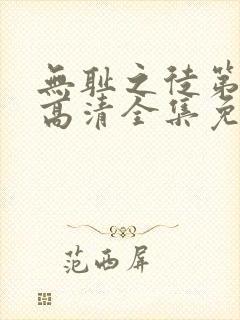 無耻之徒第
高清全集免
范西屏